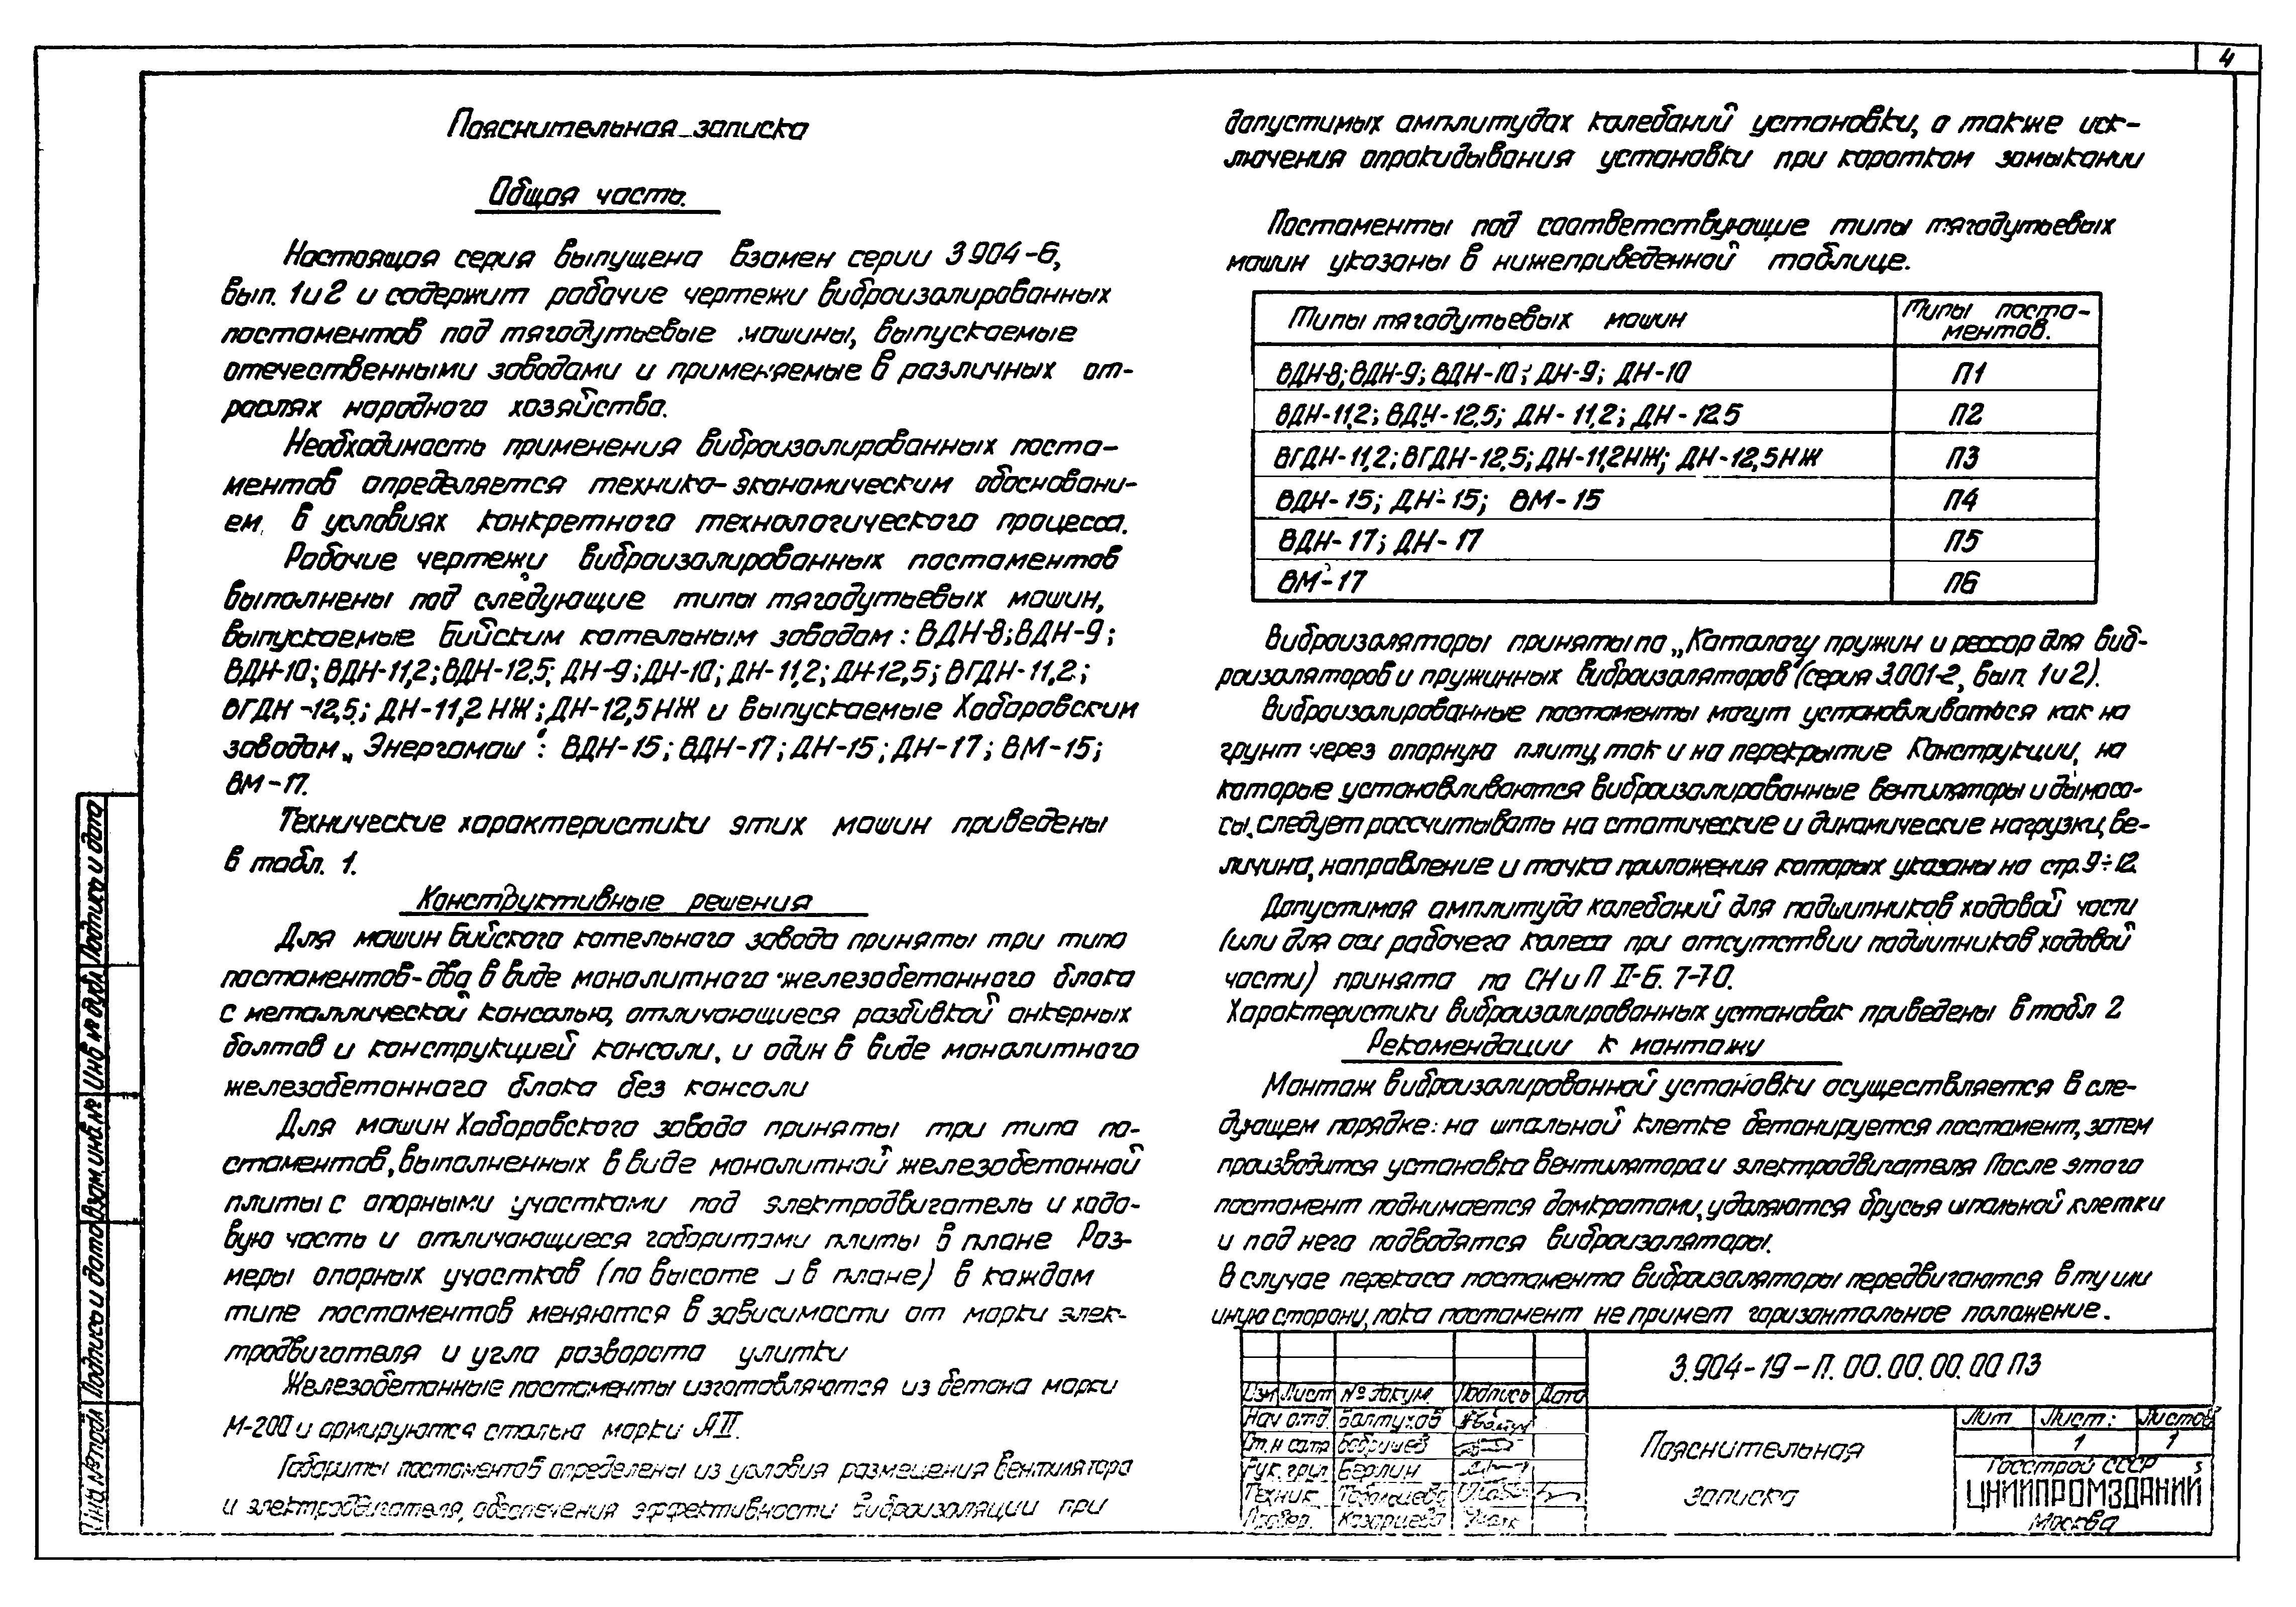 4
Пояснительная записка
Общая часть.
Настоящая серия выпущена взамен серии 3.904-6,
вып. 1 и 2 и содержит рабочие чертежи виброизолированных
постаментов под тягодутьевые машины, выпускаемые
отечественными заводами и применяемые в различных от-
раслях народного хозяйства.
Необходимость применения виброизолированных поста-
ментов определяется технико-экономическим обосновани-
ем в условиях конкретного технологического процесса.
Рабочие чертежи виброизолированных постаментов
выполнены под следующие типы тягодутьевых машин,
выпускаемые Бийским котельным заводом: ВДН-8; ВДН-9;
ВДН-10; ВДН-11,2; ВДН-12,5; ДН-9; ДН-10; ДН-11,2; ДН-12,5; ВГДН-11,2;
ВГДН-12,5; ДН-11,2 НЖ; ДН-12,5 НЖ и выпускаемые Хабаровским
заводом „Энергомаш": ВДН-15; ВДН-17; ДН-15; ДН-17; ВМ-15;
ВМ-17.
Технические характеристики этих машин приведены
в табл. 1.
Конструктивные решения
Для машин Бийского котельного завода приняты три типа
постаментов-два в виде монолитного железобетонного блока
с металлической консолью, отличающиеся разбивкой анкерных
болтов и конструкцией консоли, и один в виде монолитного
железобетонного блока без консоли
Для машин Хабаровского завода приняты три типа по-
стаментов, выполненных в виде монолитной железобетонной
плиты с опорными участками под электродвигатель и ходо-
вую часть и отличающиеся габаритами плиты в плане Раз-
меры опорных участков (по высоте и в плане) в каждом
типе постаментов меняются в зависимости от марки элек-
тродвигателя и угла разворота улитки
Железобетонные постаменты изготовляются из бетона марки
М-200 и армируются сталью марки АII.
Габариты постаментов определены из условия размещения вентилятора
и электродвигателя, обеспечения эффективности виброизоляции при
допустимых амплитудах колебаний установки, а также иск-
лючения опрокидывания установки при коротком замыкании
Постаменты под соответствующие типы тягодутьевых
машин указаны в нижеприведенной таблице.
Типы тягодутьевых машин Типы поста-
ментов.
ВДН-8; ВДН-9; ВДН-10; ДН-9; ДН-10 П1
ВДН-11,2; ВДН-12,5; ДН-11,2; ДН-12.5 П2
ВГДН-11,2; ВГДН-12,5; ДН-11,2НЖ; ДН-12,5НЖ П3
ВДН-15; ДН-15; ВМ-15 П4
ВДН-17; ДН-17 П5
ВМ-17 П6
Виброизоляторы приняты по „Каталогу пружин и рессор для виб-
роизоляторов и пружинных виброизоляторов" (серия 3.001-2, вып. 1 и 2).
Виброизолированные постаменты могут устанавливаться как на
грунт через опорную плиту, так и на перекрытие Конструкции, на
которые устанавливаются виброизолированные вентиляторы и дымосо-
сы, следует рассчитывать на статические и динамические нагрузки, ве-
личина, направление и точка приложения которых указаны на стр. 9÷12.
Допустимая амплитуда колебаний для подшипников ходовой части
(или для оси рабочего колеса при отсутствии подшипников ходовой
части) принята по СНиП II-Б. 7-70.
Характеристики виброизолированных установок приведены в табл 2
Рекомендации к монтажу
Монтаж виброизолированной установки осуществляется в сле-
дующем порядке: на шпальной клетке бетонируется постамент, затем
производится установка вентилятора и электродвигателя После этого
постамент поднимается домкратами, удаляются брусья шпальной клетки
и под него подводятся виброизоляторы.
В случае перекоса постамента виброизоляторы передвигаются в ту или
иную сторону, пока постамент не примет горизонтальное положение.
3.904-19-П.00.00.00.00 ПЗ
Изм Лист № докум. Подпись Дата
Нач отд. Балтухов
Бобришев
Рук. груп Берлин
Техник
Провер. Казарцева
Пояснительная
записка
Лит Лист: Листов
1 1
Госстрой СССР
ЦНИИПРОМЗДАНИЙ
Москва
Подпись и дата
Инв № дубл
Взам. инв. №
Подпись и дата
Инв № подл